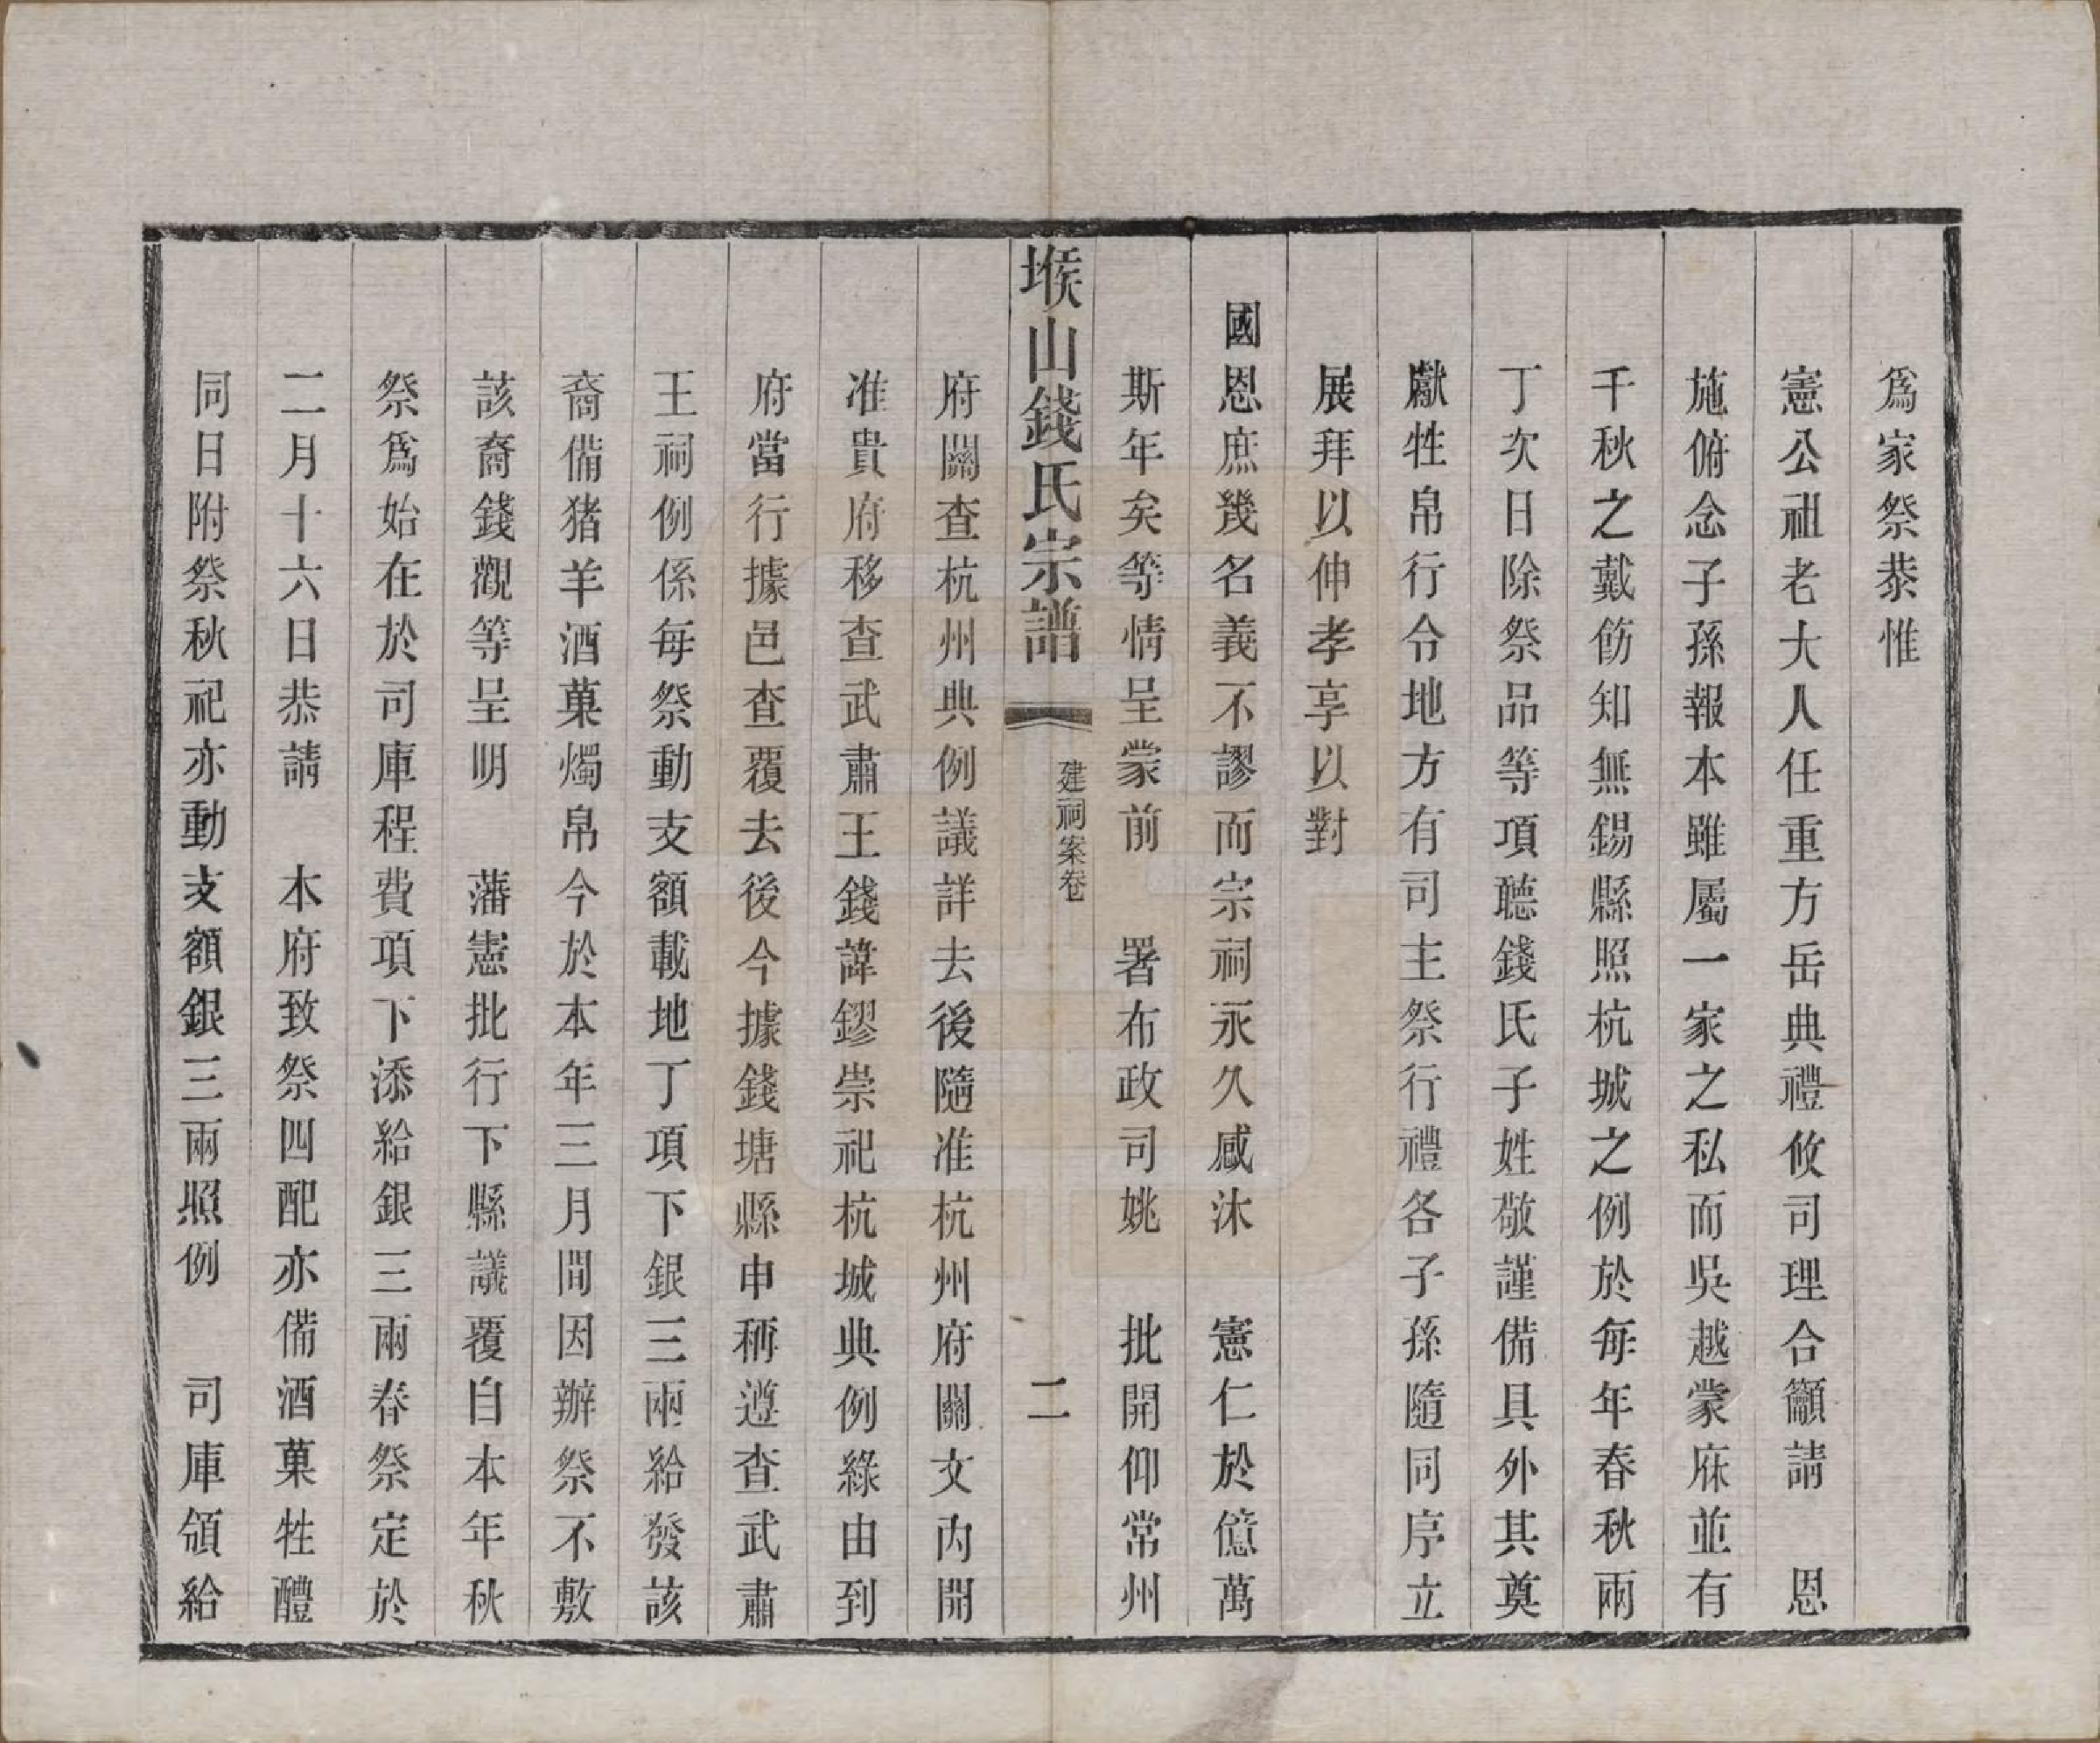 爲家祭恭惟
憲公祖老大人任重方岳典禮攸司理合籲請　恩
施俯念子孫報本雖屬一家之私而吳越蒙庥並有
千秋之戴飭知無錫縣照杭城之例於每年春秋兩
丁次日除祭品等項聽錢氏子姓敬謹備具外其奠
獻牲帛行令地方有司主祭行禮各子孫隨同序立
展拜以伸孝享以對
國恩庶幾名義不謬而宗祠永久感沐　憲仁於億萬
斯年矣等情呈蒙前　署布政司姚　批開仰常州
堠山錢氏宗譜　建祠案卷　二
府關查杭州典例議詳去後隨准杭州府關文內開
准貴府移查武肅王錢諱鏐崇祀杭城典例綠由到
府當行據邑查覆去後今據錢塘縣申稱遵查武肅
王祠例係每祭動支額載地丁項下銀三兩給發該
裔備猪羊酒菓燭帛今於本年三月間因辦祭不敷
該裔錢觀等呈明　藩憲批行下縣議覆自本年秋
祭爲始在於司庫程費項下添給銀三兩春祭定於
二月十六日恭請　本府致祭四配亦備酒菓牲醴
同日附祭秋祀亦動支額銀三兩照例　司庫頒給